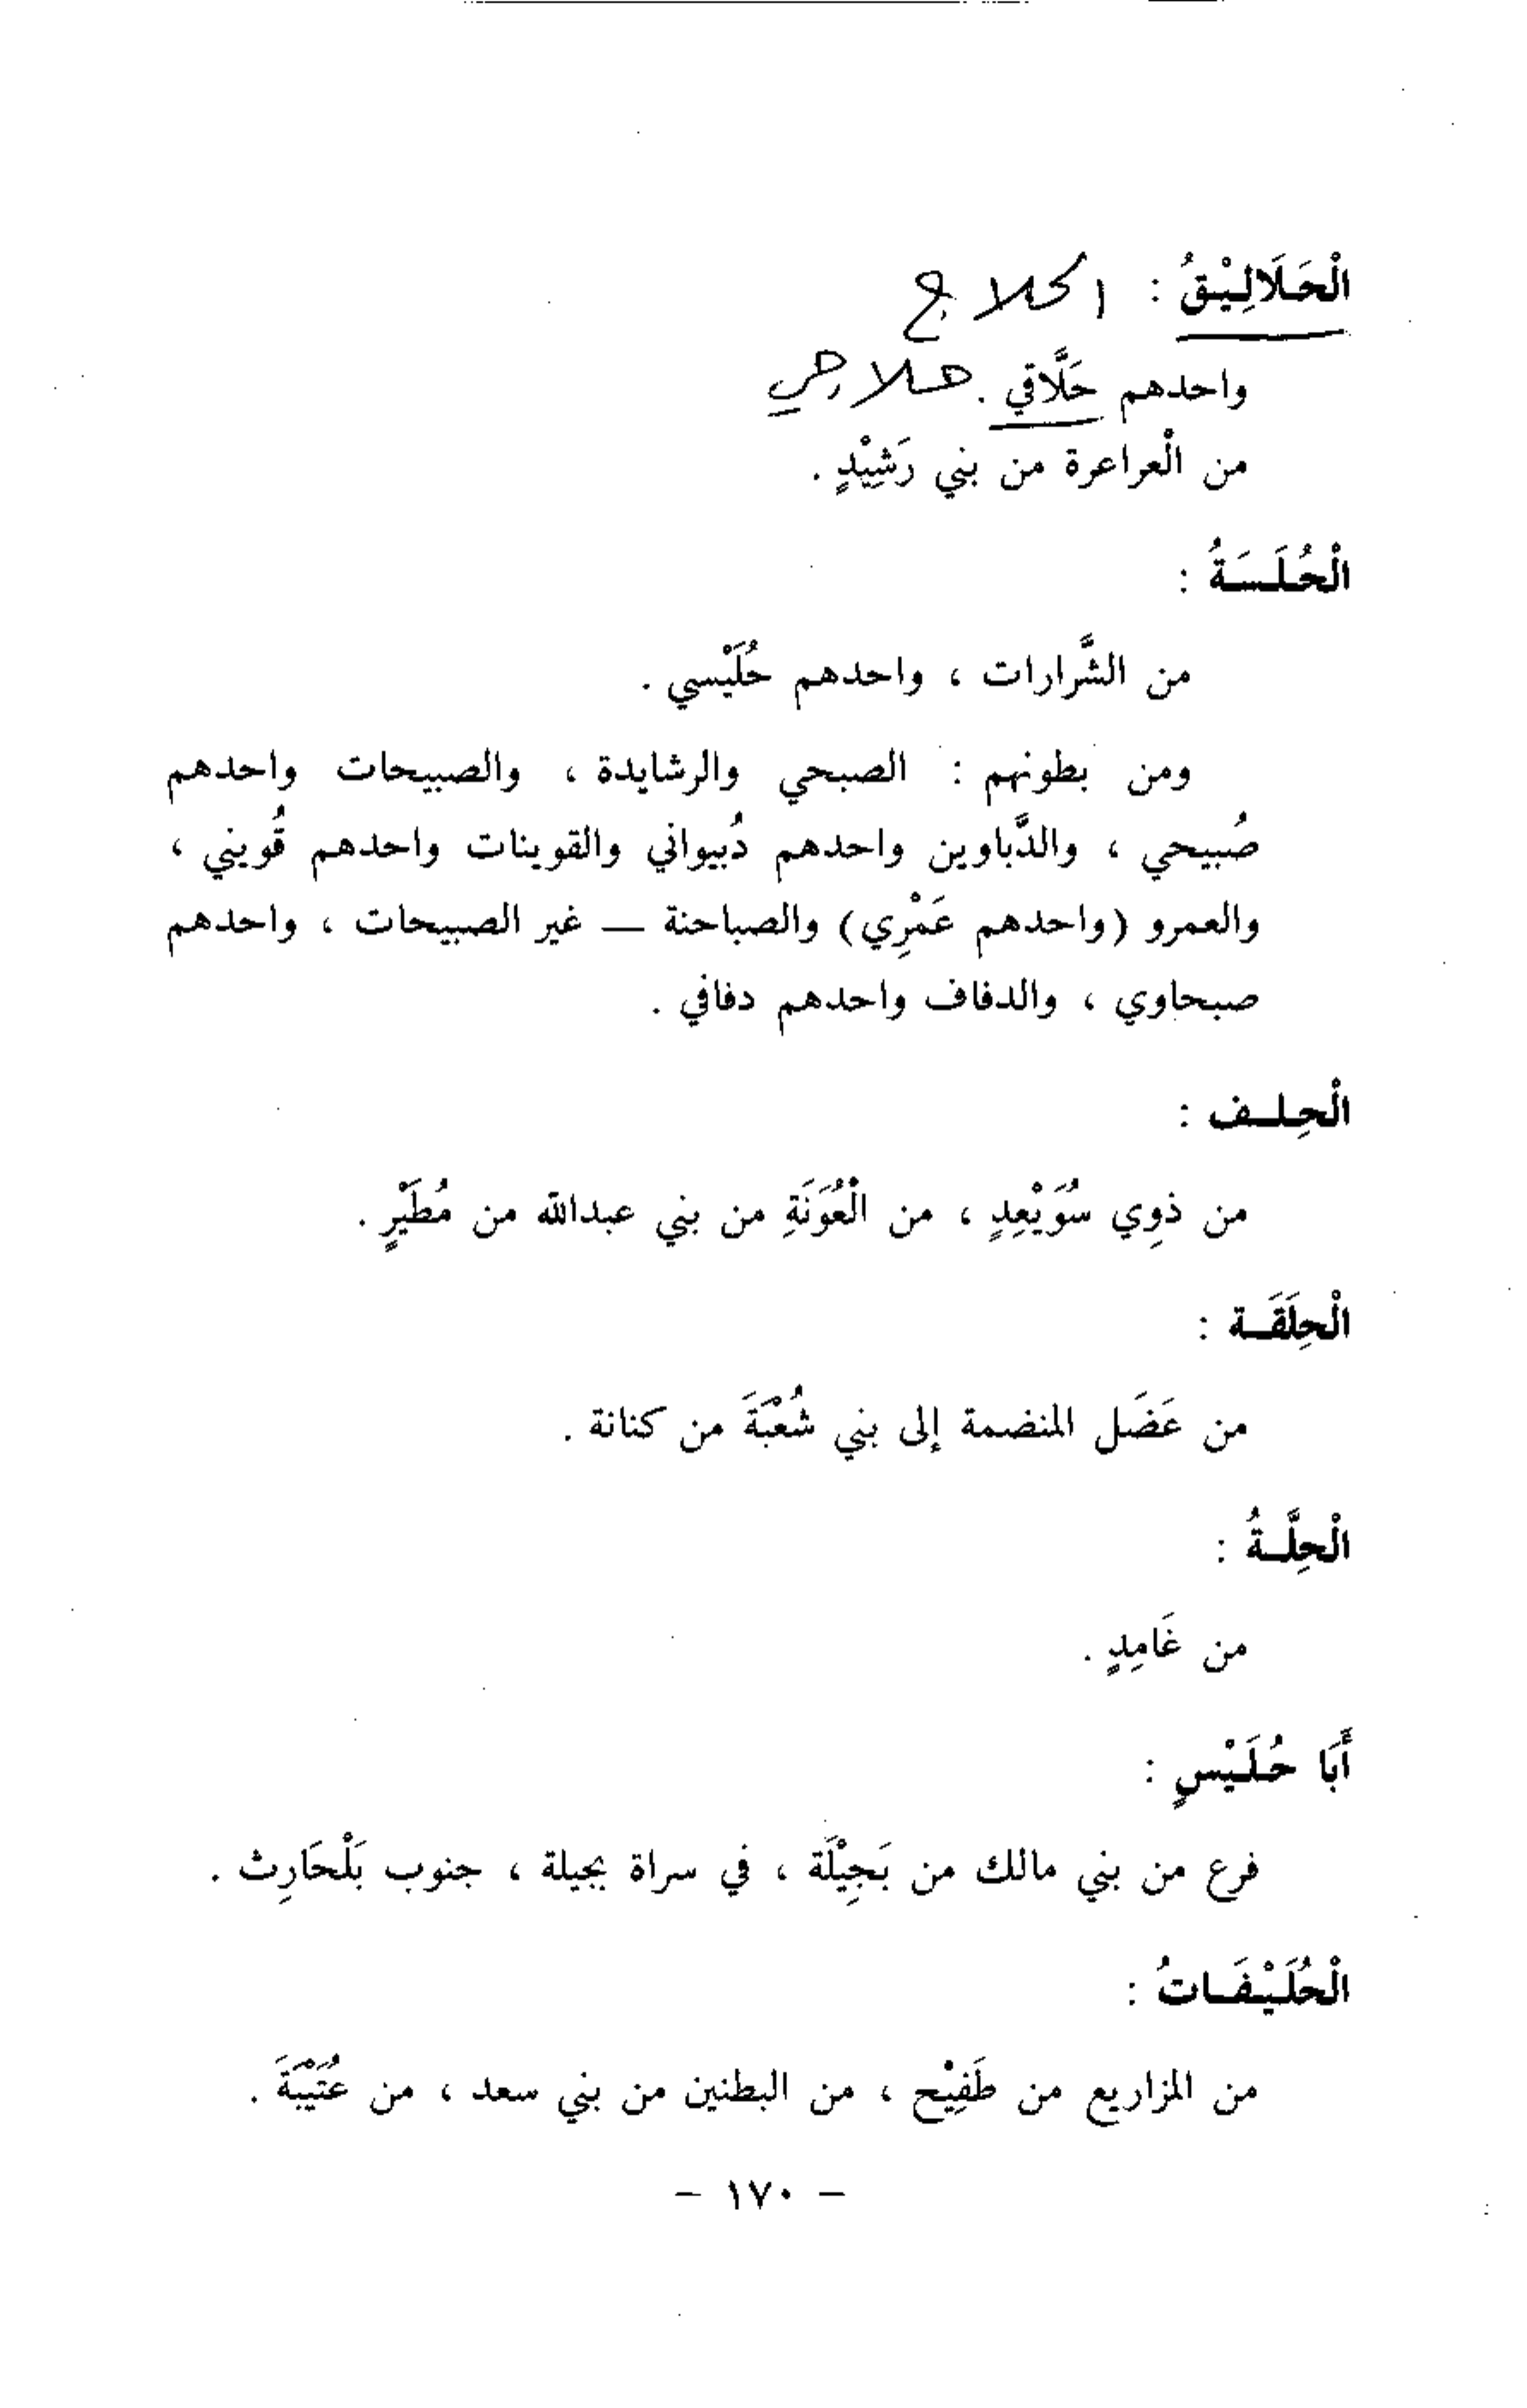 الْحَلَالِيْقُ : الحلاج
واحدهم حَلَّاقي . هلاجي
من الْعراعرة من بني رَشِيْدٍ .
الْحُلَسَةُ :
من الشَّرارات ، واحدهم حُلَيْسي .
ومن بطونهم : الصبحي والرشايدة ، والصبيحات واحدهم
صُبيحي ، والدَّباوين واحدهم دُبيواني والقوينات واحدهم قُويني ،
والعمرو (واحدهم عَمْرِي) والصباحنة — غير الصبيحات ، واحدهم
صبحاوي ، والدفاف واحدهم دفافي .
الْحِلف :
من ذوِي سُوَيْعِدٍ ، من الْعُوَنَةِ من بني عبدالله من مُطَيْرٍ .
الْحِلَقَة :
من عَضَل المنضمة إلى بني شُعْبَةَ من كنانة .
الْحِلَّةُ :
من غَامِدٍ .
أَبَا حُلَيْسٍ :
فرع من بني مالك من بَجِيْلَة ، في سراة بجيلة ، جنوب بَلْحَارِث .
الْحُلَيْفَاتُ :
من المزاريع من طَفِيْح ، من البطنين من بني سعد ، من عُتَيْبَةَ .
— ١٧٠ —